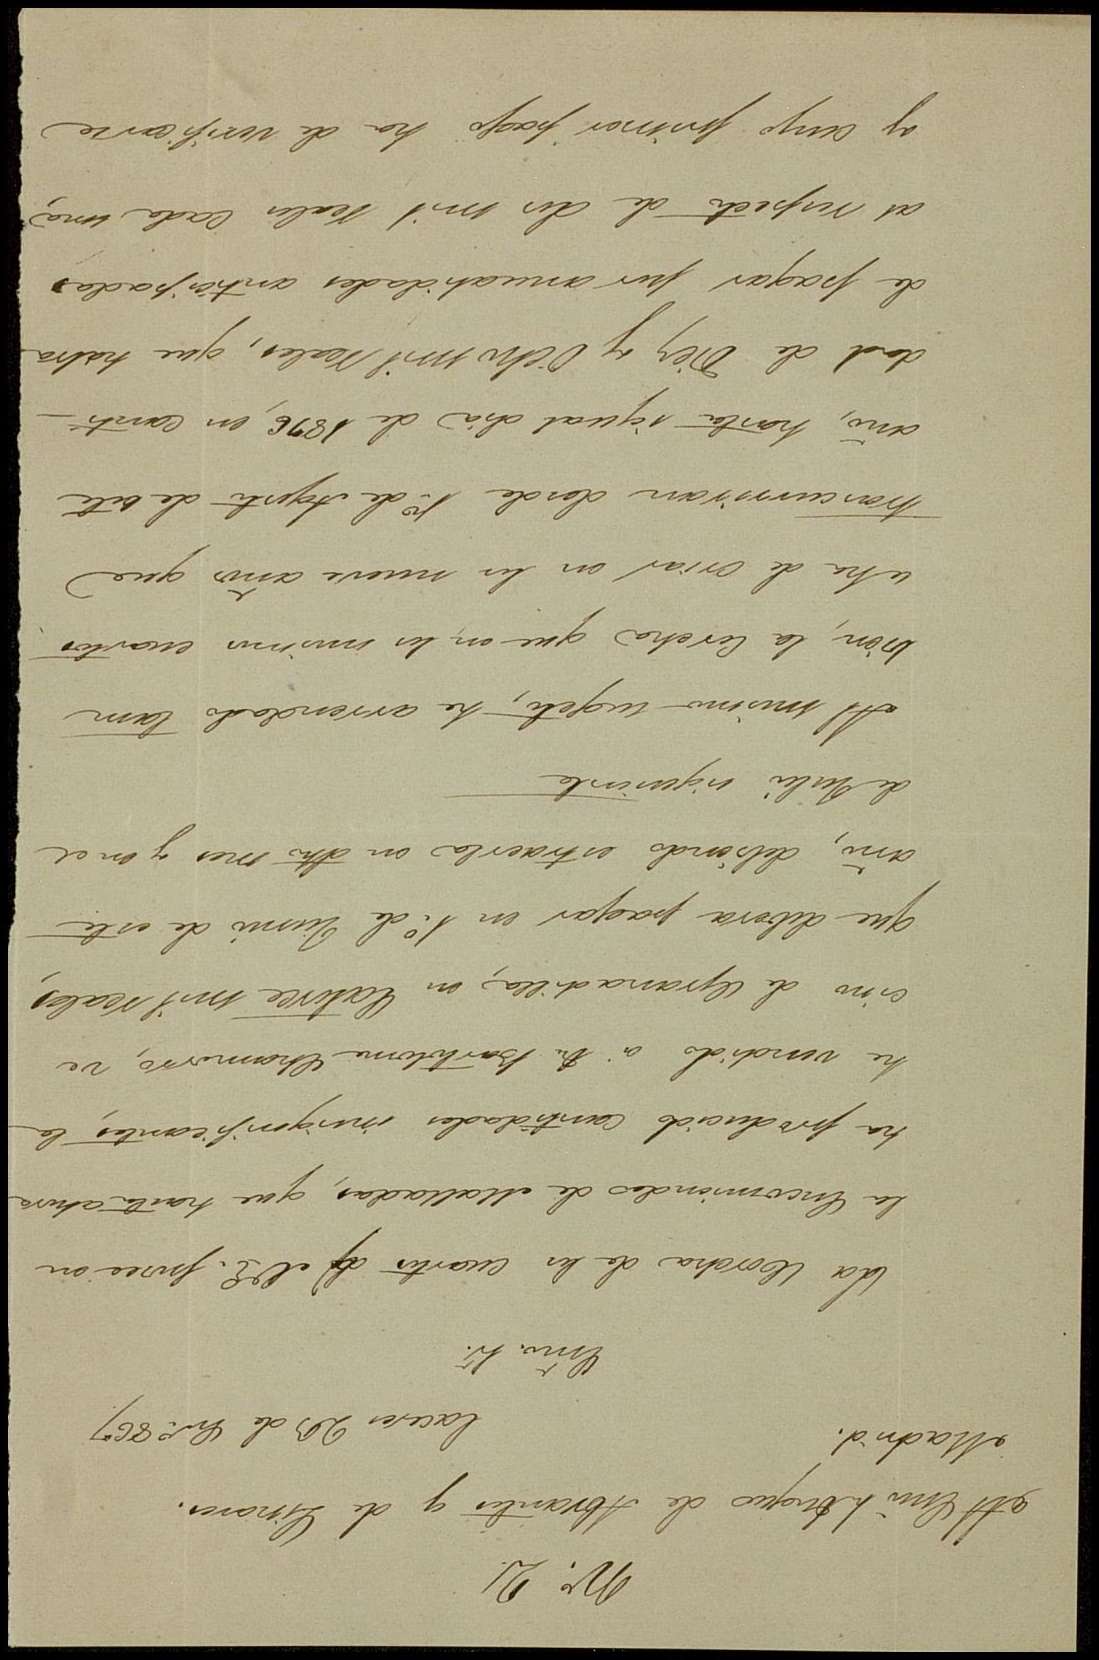 Nº. 2.
Al Exmo Sr Duque de Abrantes y de Linares.
Madrid.
Caceres 28 de En.º 867
Exmo. Sr.
La Corcha de los cuartos q. V.E. posee en
la Encomienda de Malladas, que hasta ahora
ha producido cantidades insignificantes, la
he vendido á Dn. Bartolome Chamorro, ve
cino de Granadilla, en Catorce mil reales,
que debera pagar en 1.º de Junio de este
año, debiendo estraerla en dho mes y en el
de Julio siguiente
Al mismo sugeto, he arrendado tam
bien, la Corcha que en los mismos cuartos
se ha de criar en los nueve años que
trascurriran desde 1.º de Agosto de este
año, hasta igual dia de 1876, en canti-
dad de Diez y Ocho mil Reales, que habra
de pagar por anualidades anticipadas
al respecto de dos mil reales cada una,
y cuyo primer pago ha de verificarse